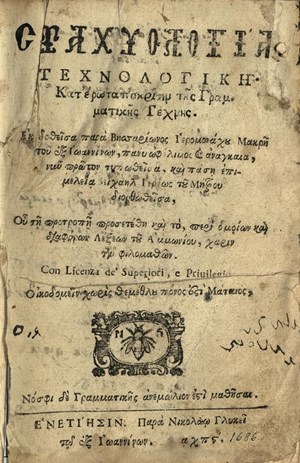 ΣΤΑΧΥΟΛΟΓΙΑ
ΤΕΧΝΟΛΟΓΙΚΗ.
Κατ' ἐρωταπόκρισιν τῆς Γραμ-
ματικῆς Τέχνης.
Ἐκδοθεῖσα παρὰ Βησσαρίωνος Ἱερομονάχου Μακρῆ
τοῦ ἐξ Ἰωαννίνων, πάνυ ὠφέλιμος καὶ ἀναγκαία,
νῦν πρῶτον τυπωθεῖσα, καὶ πάσῃ ἐπι-
μελείᾳ Μιχαὴλ τοῦ Μήτρου
διορθωθεῖσα,
Οὗ τῇ προτροπῇ προσετέθη καὶ τὸ, περὶ ὁμοίων καὶ
διαφόρων Λέξεων τοῦ Ἀμμωνίου, χάριν
τῶν φιλομαθῶν.
Con Licenza de' Superiori, e Priuilegio.
Οἰκοδομεῖν χωρὶς θεμέθλου πόνος ἐστὶ Μάταιος,
N Γ
Νόσφι δὲ Γραμματικῆς ἀνεμώλιον ἐστὶ μαθῆσαι.
ΕΝΕΤΙΗΣΙΝ. Παρὰ Νικολάῳ Γλυκεῖ
τῷ ἐξ Ἰωαννίνων. αχπς. 1686